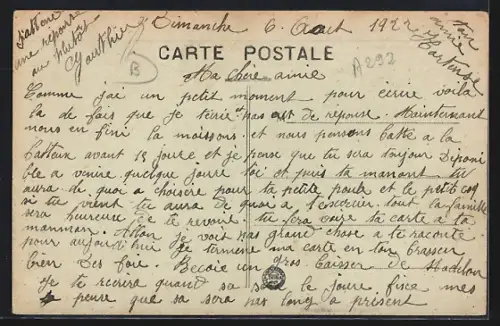 Dimanche 6 Aout 1922
ton
amie
Hortense
J'attend
une reponse
au plutôt
Gauthier
CARTE POSTALE
B
A292
Ma chère amie
Comme j'ai un petit moment pour ecrire voila
la de fois que je t'écrie et pas de reponse. Maintenant
nous en fini la moissons. et nous pensons batte a la
batteux avant 15 jours et je pense que tu sera toujour disponi
ble a venire quelque jours toi et puis ta manant tu
aura de quoi a choisire pour ta petite poule et le petit coq
si tu vient tu aura de quoi a t'exercier tout la famille
sera heureuse de te revoir. tu fera voire ta carte a la
manman. Allon je voit pas grand chose a te raconté
pour aujourd'hui Je termine ma carte en t'en brassen
bien des fois Recoie un gros baisser de Madelon
Je te recrira quand sa sera le jours fixe mes
je pense que sa sera pas long a présent